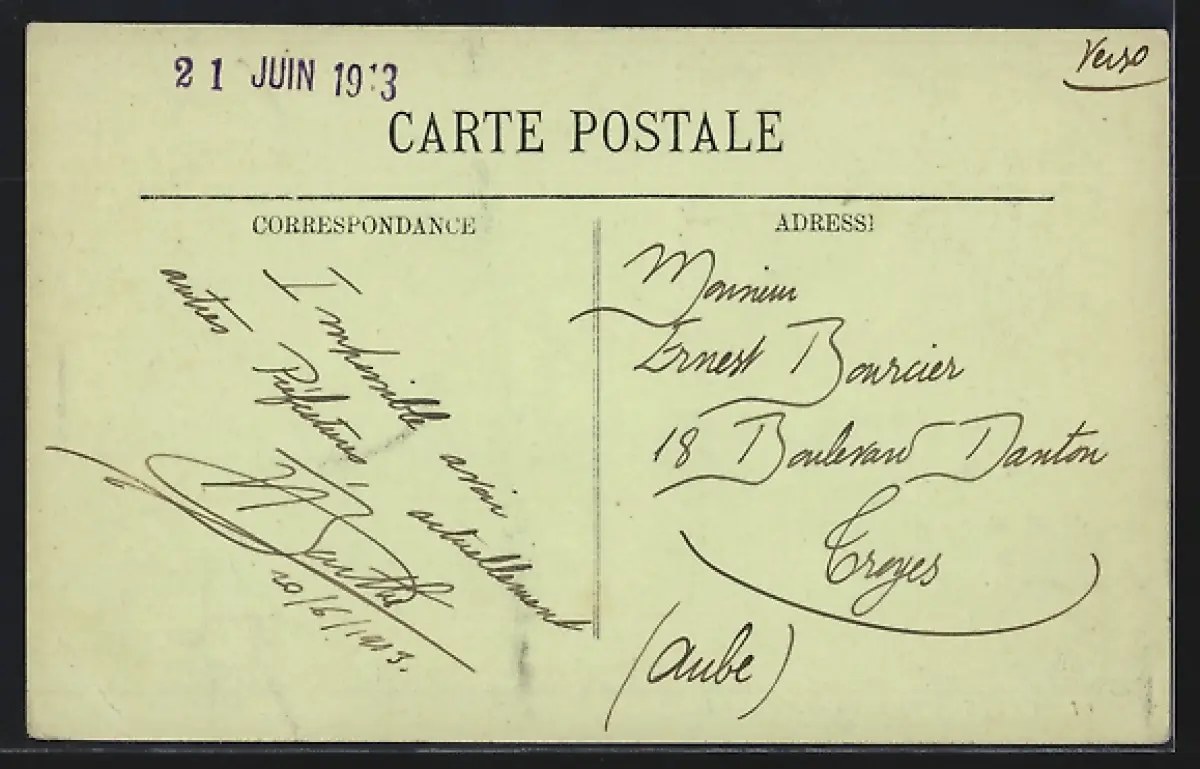 21 JUIN 1913
Verso
CARTE POSTALE
CORRESPONDANCE
Impossible avoir actuellement
autres Préfectures
Barthe
20/6/1913.
ADRESSE
Monsieur
Ernest Bourcier
18 Boulevard Danton
Troyes
(Aube)